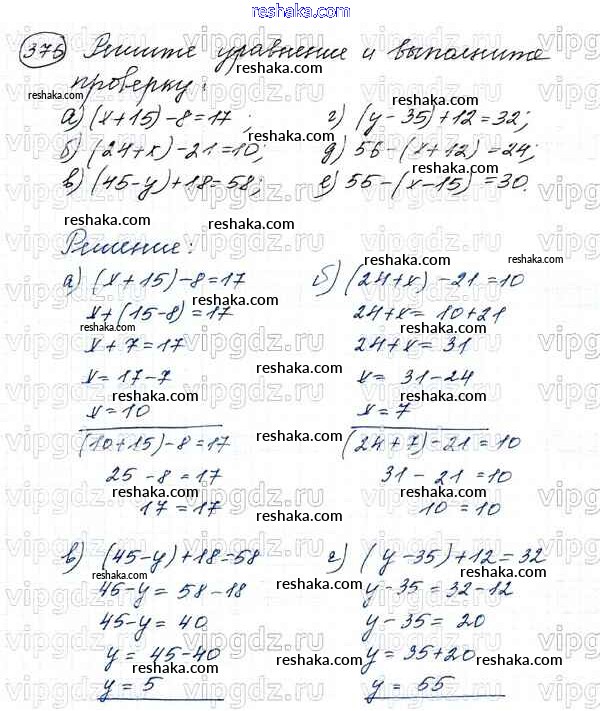 reshaka.com
376 Решите уравнение и выполните
проверку:
а) (x+15)-8=17; г) (y-35)+12=32;
б) (24+x)-21=10; д) 56-(x+12)=24;
в) (45-y)+18=58; е) 55-(x-15)=30.
Решение:
а) (x+15)-8=17
x+(15-8)=17
x+7=17
x=17-7
x=10
(10+15)-8=17
25-8=17
17=17
б) (24+x)-21=10
24+x=10+21
24+x=31
x=31-24
x=7
(24+7)-21=10
31-21=10
10=10
в) (45-y)+18=58
45-y=58-18
45-y=40
y=45-40
y=5
г) (y-35)+12=32
y-35=32-12
y-35=20
y=35+20
y=55
vipgdz.ru